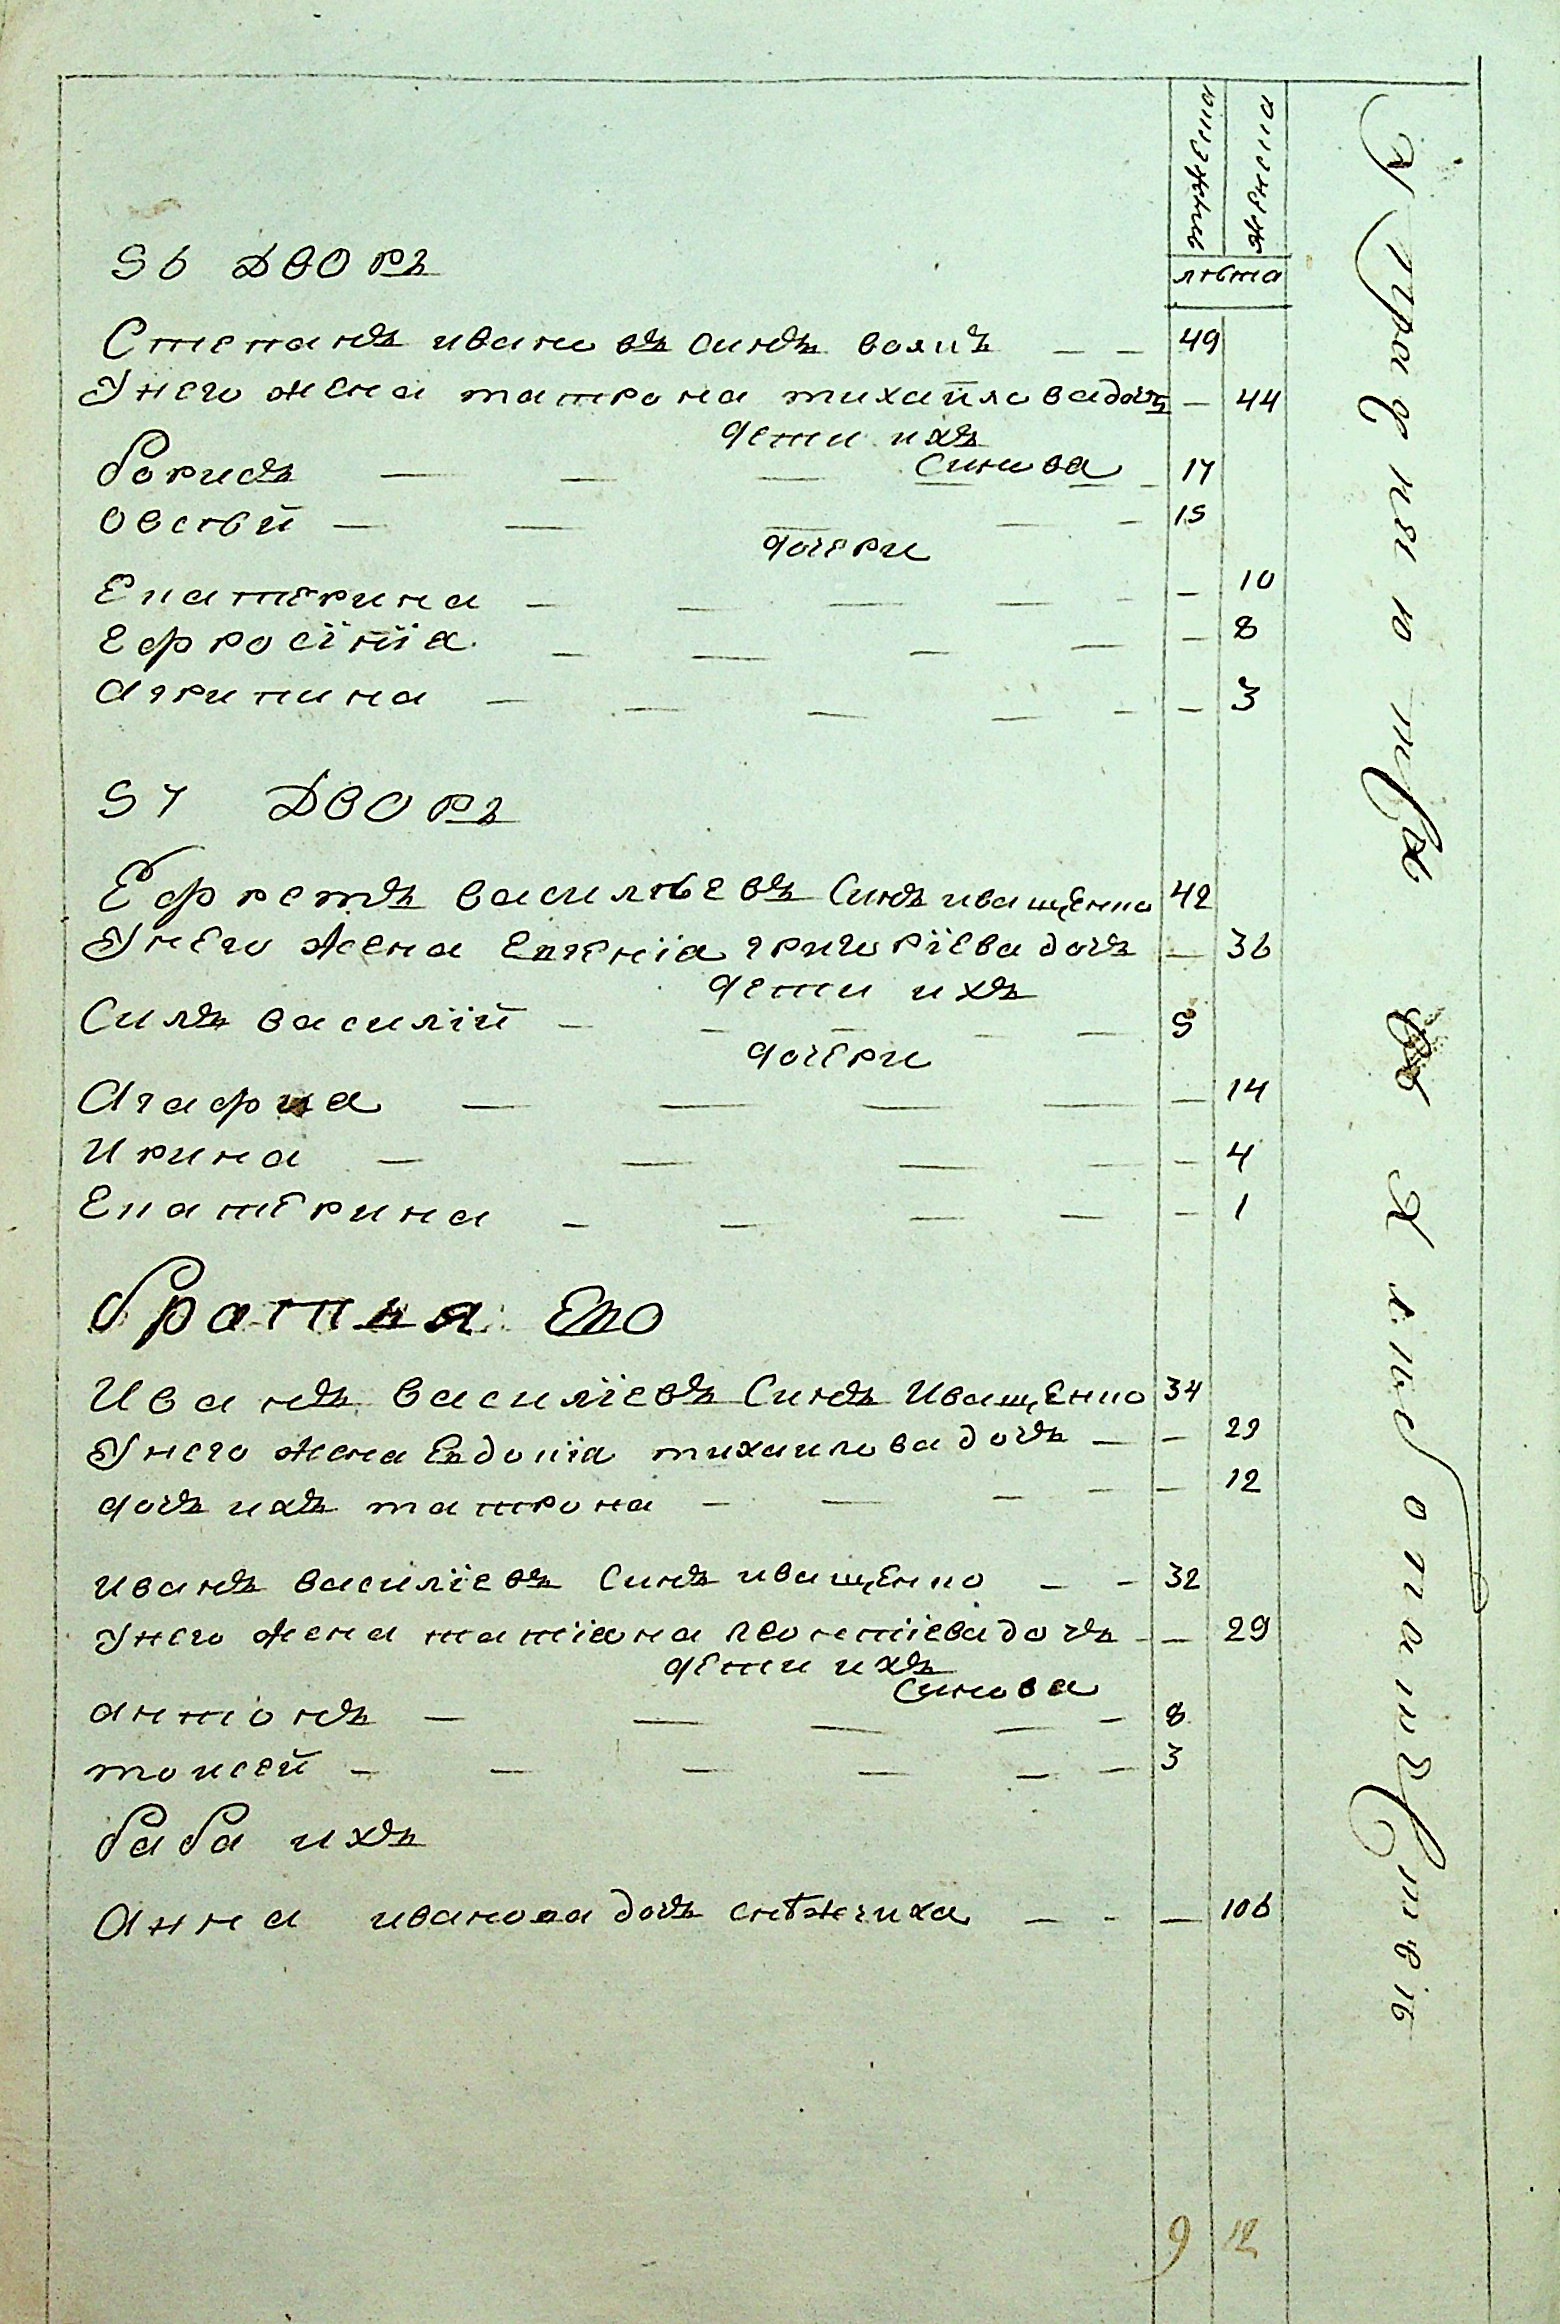 мужеска
женска
лѣта
56 Дворъ
Степанъ ивановъ синъ воякъ — — 49
Унего жена матрона михайловадочъ — 44
дети ихъ
синова
борисъ — — — — 17
овсѣй — — — — — 15
дочери
Екатерина — — — — — — 10
Ефросїнїа — — — — — 8
агрипина — — — — — — 3
57 Дворъ
Ефремъ васильевъ Синъ иващенко 42
Унего жена Евгенїа григорїева дочъ — 36
дети ихъ
Синъ василїй — — — — — 5
дочери
Агафиа — — — — — 14
Ирина — — — — — 4
Екатерина — — — — — 1
братья Его
Иванъ василїевъ Синъ Иващенко 34
Унего жена Евдокїа михаилова дочъ — — 29
дочъ ихъ матрона — — — — — 12
иванъ василїевъ Синъ иващенко — — 32
Унего жена татїана леонтїева дочъ — — 29
дети ихъ
Синова
антонъ — — — — — 8
моисей — — — — — — 3
баба ихъ
Анна иванова дочъ снѣжчиха — — — 106
9 12